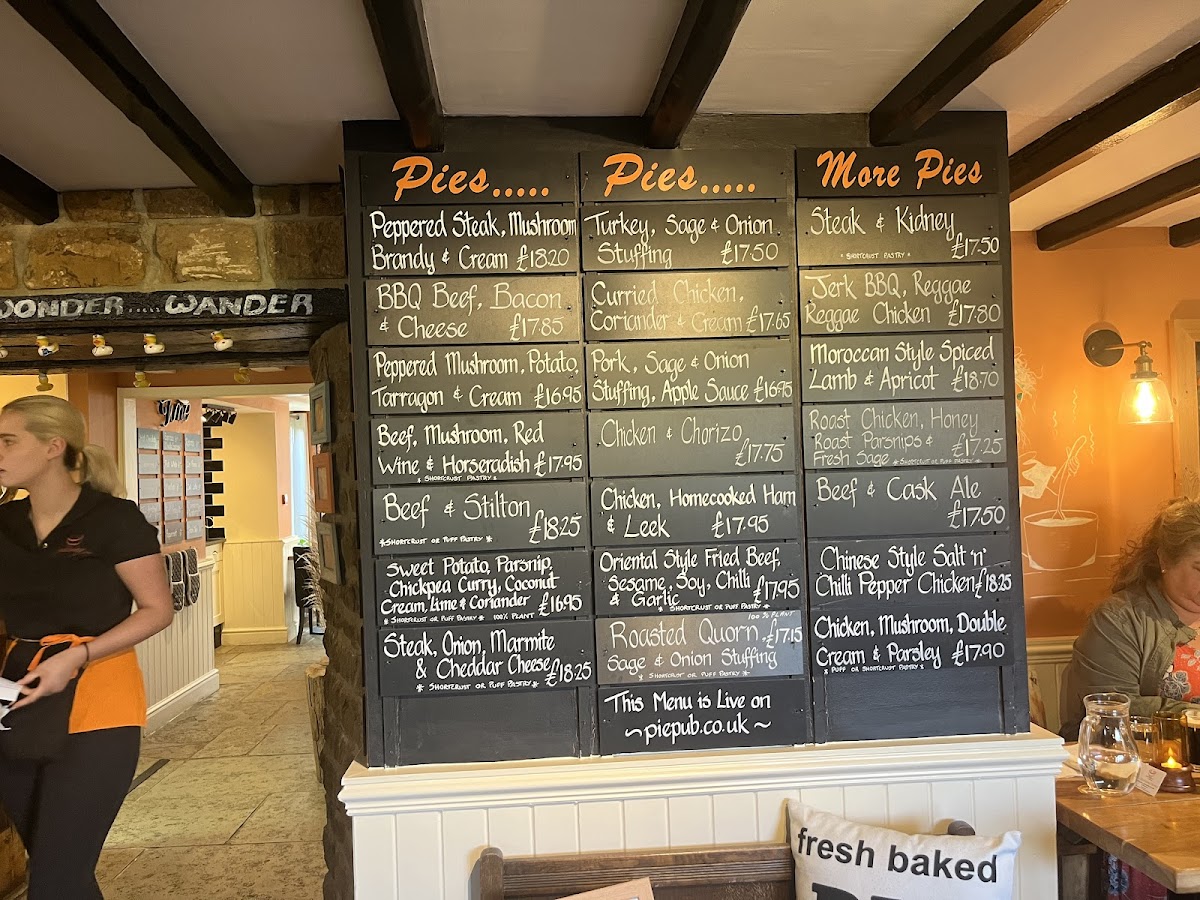 WONDER ..... WANDER
Pies.....
Peppered Steak, Mushroom
Brandy & Cream £18.20
BBQ Beef, Bacon
& Cheese £17.85
Peppered Mushroom, Potato,
Tarragon & Cream £16.95
Beef, Mushroom, Red
Wine & Horseradish £17.95
* Shortcrust Pastry *
Beef & Stilton
£18.25
*Shortcrust or Puff Pastry *
Sweet Potato, Parsnip,
Chickpea Curry, Coconut
Cream, Lime & Coriander £16.95
* Shortcrust or Puff Pastry * 100% Plant
Steak, Onion, Marmite
& Cheddar Cheese £18.25
* Shortcrust or Puff Pastry *
Pies.....
Turkey, Sage & Onion
Stuffing £17.50
Curried Chicken,
Coriander & Cream £17.65
Pork, Sage & Onion
Stuffing, Apple Sauce £16.95
Chicken & Chorizo
£17.75
Chicken, Homecooked Ham
& Leek £17.95
Oriental Style Fried Beef,
Sesame, Soy, Chilli
& Garlic £17.95
* Shortcrust or Puff Pastry *
100% Plant
Roasted Quorn £17.15
Sage & Onion Stuffing
* Shortcrust or Puff Pastry *
This Menu is Live on
~piepub.co.uk~
More Pies
Steak & Kidney
£17.50
* Shortcrust Pastry *
Jerk BBQ, Reggae
Reggae Chicken £17.80
Moroccan Style Spiced
Lamb & Apricot £18.70
Roast Chicken, Honey
Roast Parsnips &
Fresh Sage £17.25
* Shortcrust or Puff Pastry *
Beef & Cask Ale
£17.50
Chinese Style Salt 'n'
Chilli Pepper Chicken £18.25
Chicken, Mushroom, Double
Cream & Parsley £17.90
* Puff or Shortcrust Pastry *
fresh baked